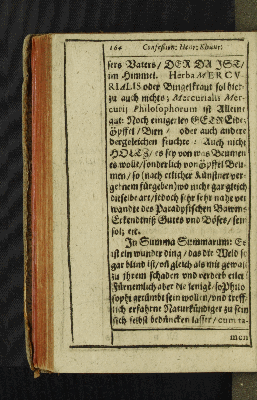 164 Confession: Henr: Khunr:
sers Vaters/ DER DA IST/
im Himmel. Herba MERCV-
RIALIS oder Bingelkraut sol hier-
zu auch nichts; Mercurialis Mer-
curij Philosophorum ist Alleine
gut: Noch einigerley GETREIde;
Öpffel/ Birn/ oder auch andere
dergleichen früchte: Auch nicht
HOLTZ/ es sey von was Beumen
es wolle/ sonderlich von Öpffel Beu-
men/ so (nach etlicher Künstner ver-
gebnem fürgeben) wo nicht gar gleich
dieselbe art/ jedoch sehr sehr nahe ver-
wandte des Paradysischen Bawms
Erkendtniß Guttes und Böses/ sein
sol/ etc.
In Summa Summarum: Es
ist ein wunder ding/ das die Welt so
gar blind ist/ ob gleich als mit gewalt
zu ihrem schaden und verderb eilet
Fürnemlich aber die jenige/ so Philo-
sophi gerümbt sein wollen/ und treff-
lich erfahrne Naturkündiger zu sein
sich selbst bedüncken lassen/ cum ta-
men